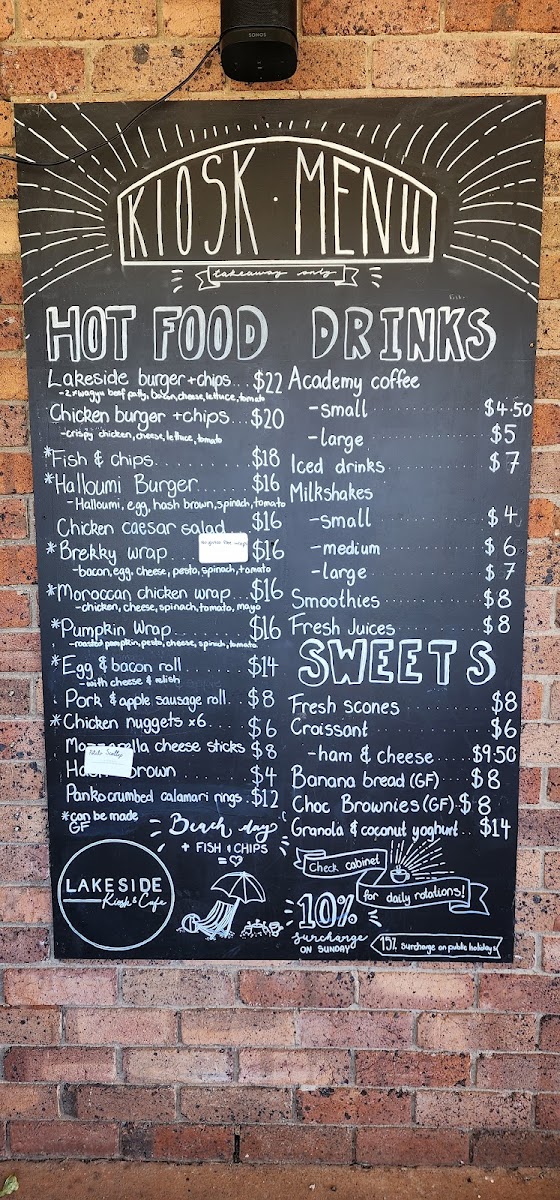 SONOS
KIOSK · MENU
takeaway only
HOT FOOD
Lakeside burger+chips... $22
-2 x wagyu beef patty, bacon, cheese, lettuce, tomato
Chicken burger +chips... $20
-crispy chicken, cheese, lettuce, tomato
*Fish & chips $18
*Halloumi Burger $16
-Halloumi, egg, hash brown, spinach, tomato
Chicken caesar salad $16
*Brekky wrap $16
-bacon, egg, cheese, pesto, spinach, tomato
*Moroccan chicken wrap $16
-chicken, cheese, spinach, tomato, mayo
*Pumpkin Wrap $16
-roasted pumpkin, pesto, cheese, spinach, tomato
*Egg & bacon roll $14
-with cheese & relish
Pork & apple sausage roll $8
*Chicken nuggets x6 $6
cheese sticks $8
Potato Scallop
brown $4
Panko crumbed calamari rings $12
*can be made
GF
Beach day
+ FISH & CHIPS
=
LAKESIDE
Kiosk & Cafe
DRINKS
Academy coffee
-small $4.50
-large $5
Iced drinks $7
Milkshakes
-small $4
-medium $6
-large $7
Smoothies $8
Fresh Juices $8
SWEETS
Fresh scones $8
Croissant $6
-ham & cheese $9.50
Banana bread (GF) $8
Choc Brownies (GF) $8
Granola & coconut yoghurt $14
Check cabinet
for daily rotations!
10%
surcharge
ON SUNDAY
15% surcharge on public holidays